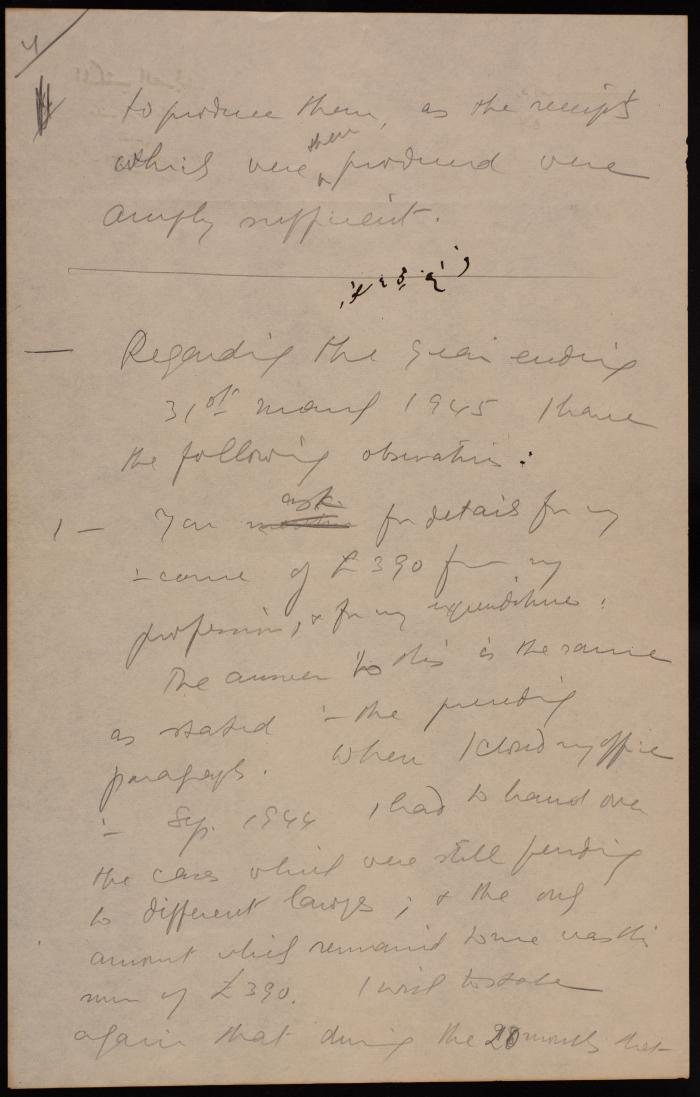 4
to produce them, as the receipts
which were then produced were
amply sufficient.
Regarding the year ending
31st March 1945 I have
the following observations :
1 — You ask for details for my
income of £390 from my
profession, & for my expenditures.
The answer to this is the same
as stated in the preceding
paragraph. When I closed my office
in Sep. 1944 I had to hand over
the cases which were still pending
to different lawyers ; & the only
amount which remained to me was this
sum of £390. I wish to state
again that during the 20 months that